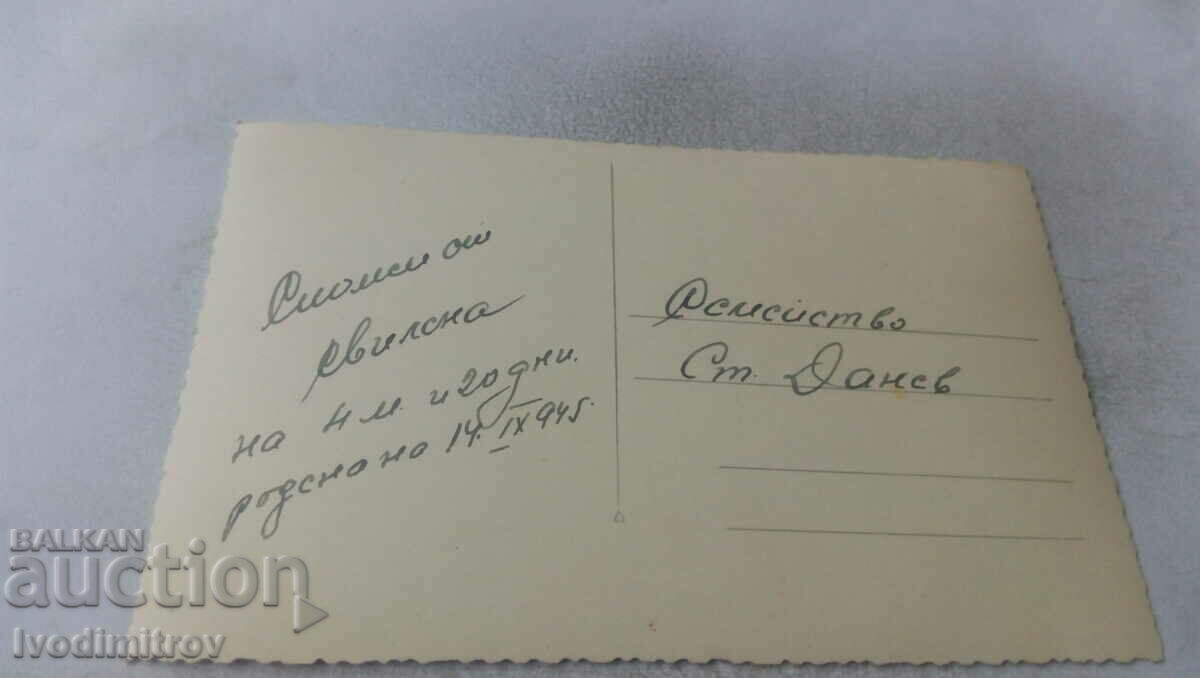 Спомен от
Свилена
на 4 м. и 20 дни.
родена на 14. IX 945.
Семейство
Ст. Данев
BALKAN
auction
Ivodimitrov